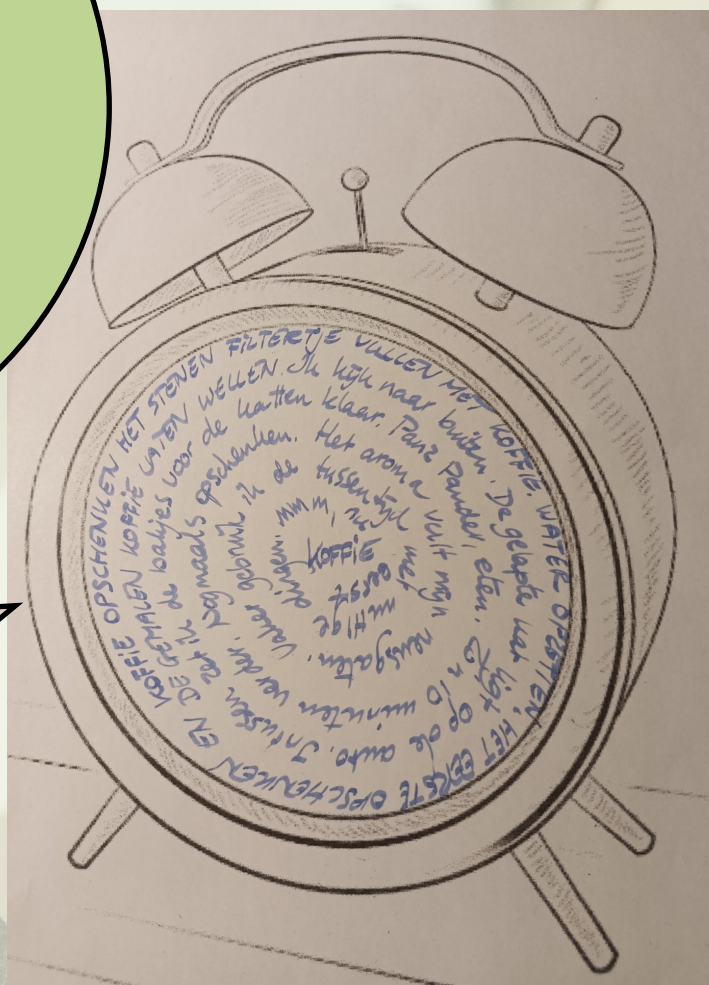 KOFFIE OPSCHENKEN HET STENEN FILTERTJE VULLEN MET KOFFIE. WATER OPZETTEN, HET EERSTE OPSCHENKEN EN
DE GEMALEN KOFFIE LATEN WELLEN. Ik kijk naar buiten. De gelapte kat ligt op de auto. Intussen
zet ik de bakjes voor de katten klaar. Panz Pander, eten. Zo'n 10 minuten verder.
Nogmaals opschenken. Het aroma vult mijn neusgaten. Vaker gebruik
ik de tussentijd met nuttige dingen.
mmm, nu eerst
KOFFIE